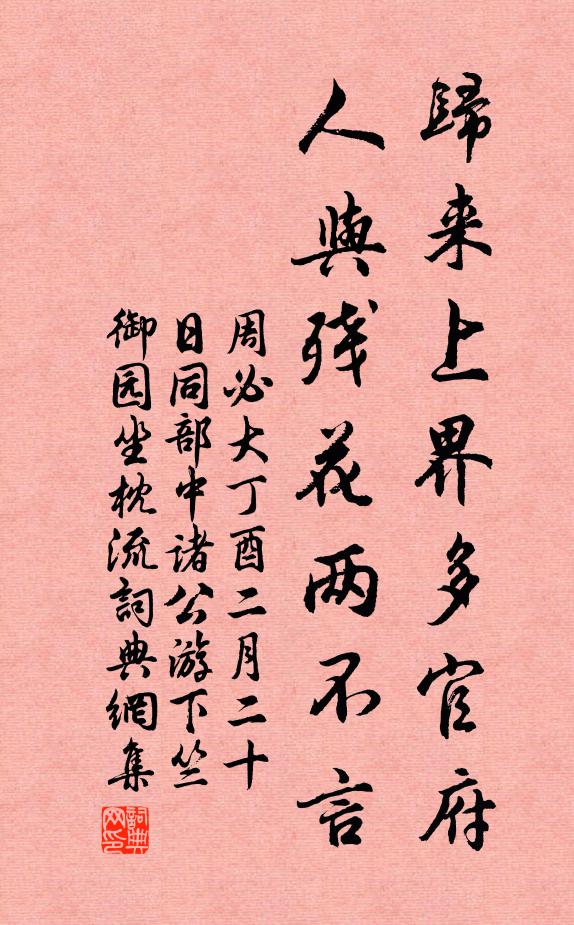 歸来上界多官府
人與残花两不言
周必大丁酉二月二十
日同部中诸公游下竺
御园坐枕流詞典網集
詞典网印